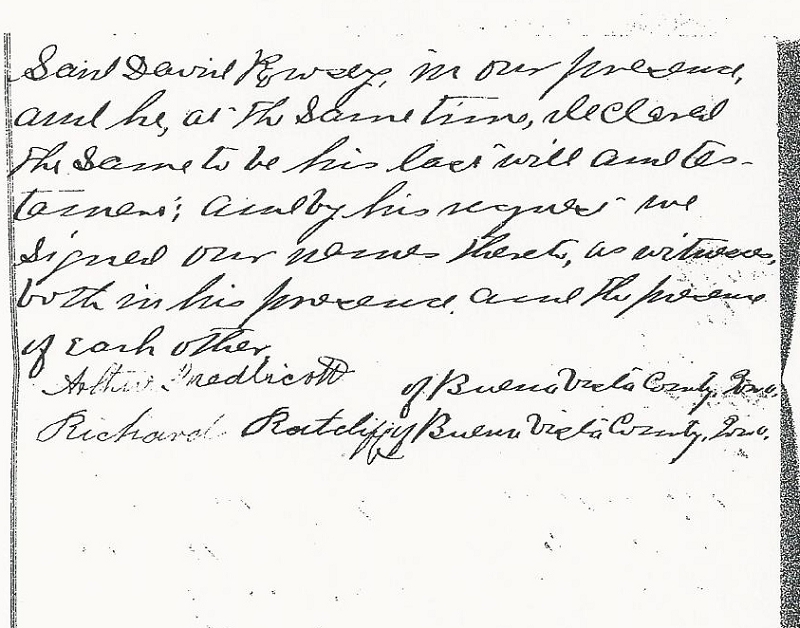 Said David Rowsey, in our presence,
and he, at the Same time, declared
the Same to be his last will and tes-
tament; and by his request we
Signed our names thereto, as witnesses,
both in his presence and the presence
of each other.
Arthur of Buena Vista County, Iowa.
Richard Ratcliff of Buena Vista County, Iowa.